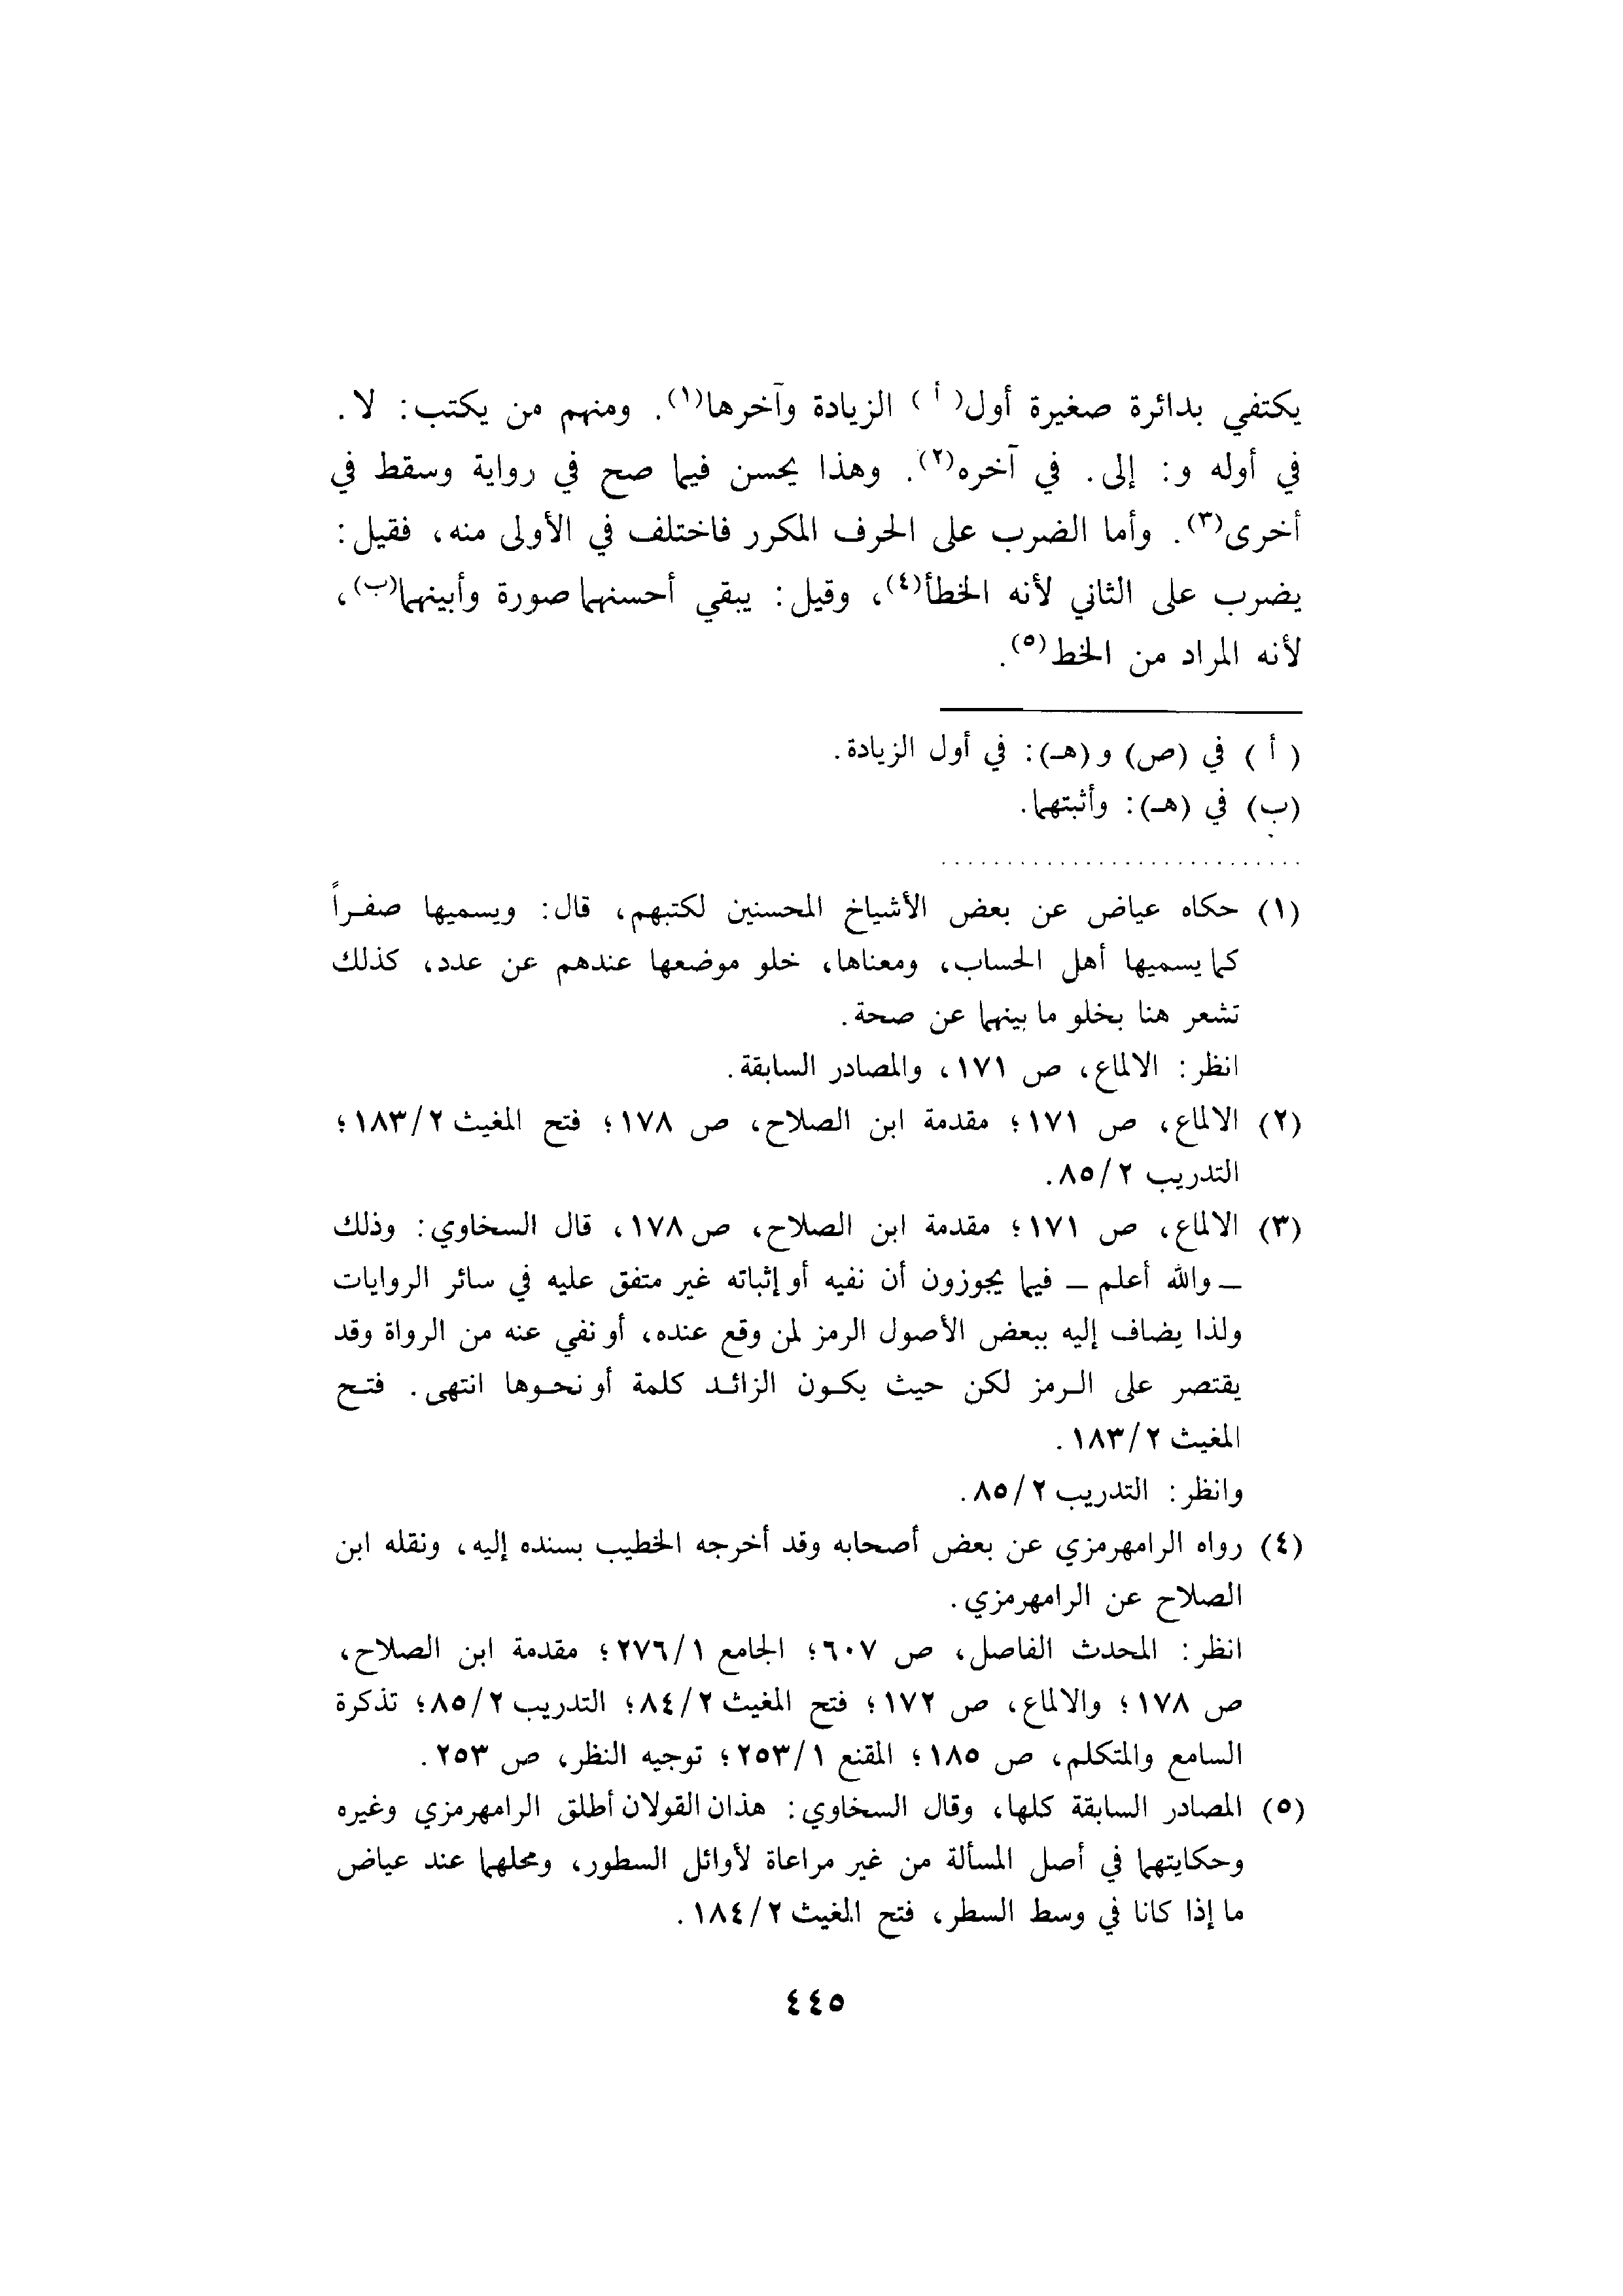 يكتفي بدائرة صغيرة أول( أ ) الزيادة وآخرها(١). ومنهم من يكتب: لا.
في أوله و: إلى. في آخره(٢). وهذا يحسن فيما صح في رواية وسقط في
أخرى(٣). وأما الضرب على الحرف المكرر فاختلف في الأولى منه، فقيل:
يضرب على الثاني لأنه الخطأ(٤)، وقيل: يبقي أحسنهما صورة وأبينهما(ب)،
لأنه المراد من الخط(٥).
( أ ) في (ص) و (هـ): في أول الزيادة.
(ب) في (هـ): وأثبتهما.
(١) حكاه عياض عن بعض الأشياخ المحسنين لكتبهم، قال: ويسميها صفراً
كما يسميها أهل الحساب، ومعناها، خلو موضعها عندهم عن عدد، كذلك
تشعر هنا بخلو ما بينهما عن صحة.
انظر: الالماع، ص ١٧١، والمصادر السابقة.
(٢) الالماع، ص ١٧١؛ مقدمة ابن الصلاح، ص ١٧٨؛ فتح المغيث ١٨٣/٢؛
التدريب ٨٥/٢.
(٣) الالماع، ص ١٧١؛ مقدمة ابن الصلاح، ص ١٧٨، قال السخاوي: وذلك
ــ والله أعلم ــ فيما يجوزون أن نفيه أو إثباته غير متفق عليه في سائر الروايات
ولذا يضاف إليه ببعض الأصول الرمز لمن وقع عنده، أو نفي عنه من الرواة وقد
يقتصر على الرمز لكن حيث يكون الزائد كلمة أو نحوها انتهى. فتح
المغيث ١٨٣/٢.
وانظر: التدريب ٨٥/٢.
(٤) رواه الرامهرمزي عن بعض أصحابه وقد أخرجه الخطيب بسنده إليه، ونقله ابن
الصلاح عن الرامهرمزي.
انظر: المحدث الفاصل، ص ٦٠٧؛ الجامع ٢٧٦/١؛ مقدمة ابن الصلاح،
ص ١٧٨؛ والالماع، ص ١٧٢؛ فتح المغيث ٨٤/٢؛ التدريب ٨٥/٢؛ تذكرة
السامع والمتكلم، ص ١٨٥؛ المقنع ٢٥٣/١؛ توجيه النظر، ص ٢٥٣.
(٥) المصادر السابقة كلها، وقال السخاوي: هذان القولان أطلق الرامهرمزي وغيره
وحكايتهما في أصل المسألة من غير مراعاة لأوائل السطور، ومحلهما عند عياض
ما إذا كانا في وسط السطر، فتح المغيث ١٨٤/٢.
٤٤٥